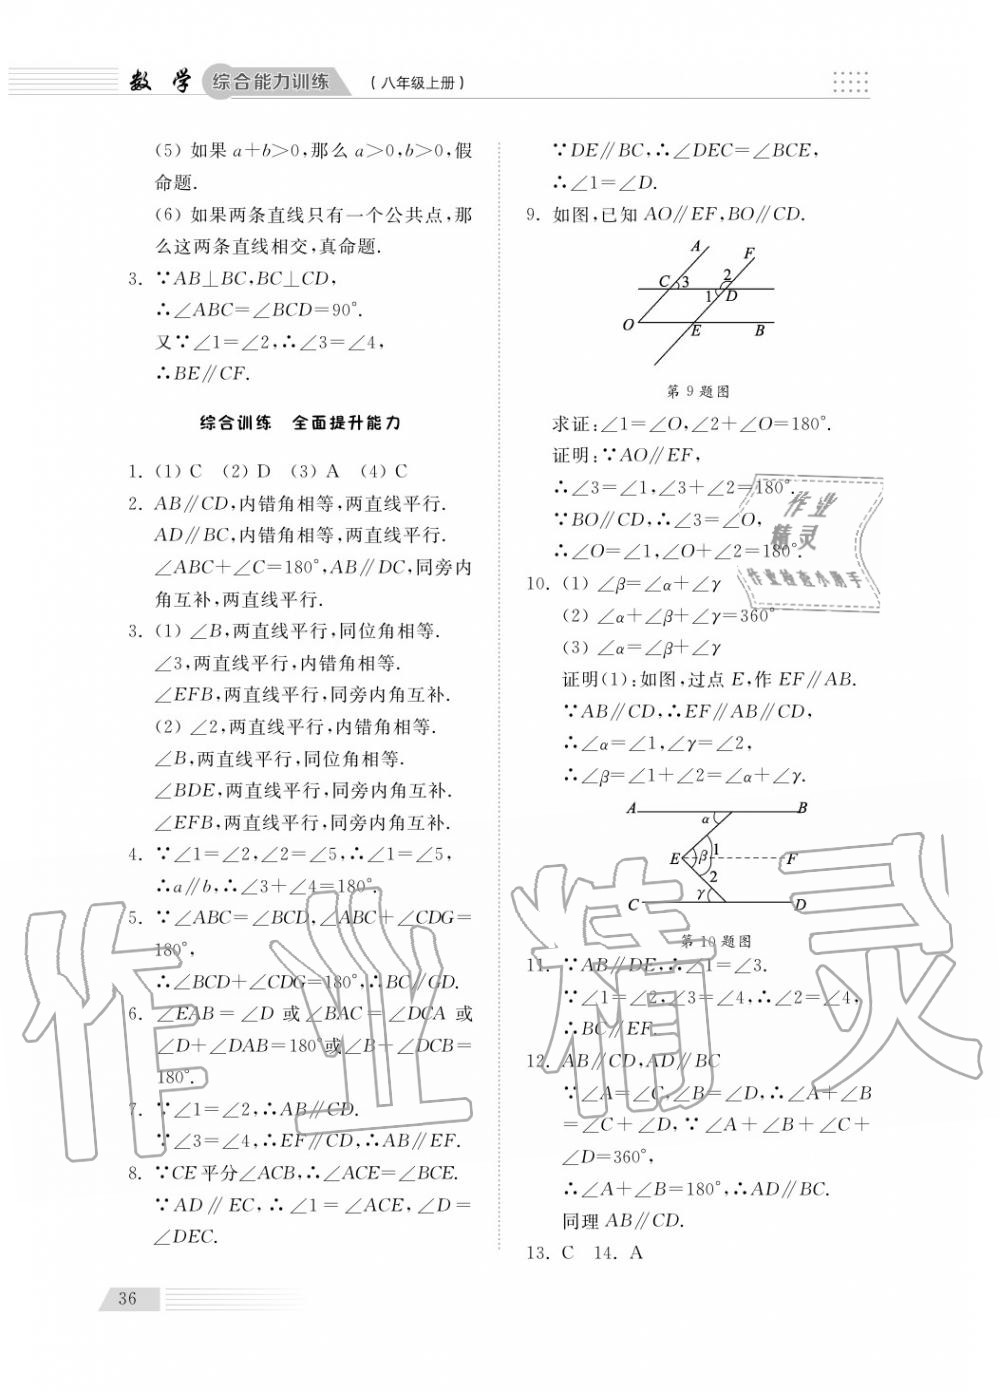 数 学 综合能力训练 (八年级上册)
(5) 如果 a+b>0,那么 a>0,b>0,假
命题.
(6) 如果两条直线只有一个公共点,那
么这两条直线相交,真命题.
3. ∵AB⊥BC,BC⊥CD,
∴∠ABC=∠BCD=90°.
又∵∠1=∠2,∴∠3=∠4,
∴BE∥CF.
综合训练 全面提升能力
1. (1) C (2) D (3) A (4) C
2. AB∥CD,内错角相等,两直线平行.
AD∥BC,内错角相等,两直线平行.
∠ABC+∠C=180°,AB∥DC,同旁内
角互补,两直线平行.
3. (1) ∠B,两直线平行,同位角相等.
∠3,两直线平行,内错角相等.
∠EFB,两直线平行,同旁内角互补.
(2) ∠2,两直线平行,内错角相等.
∠B,两直线平行,同位角相等.
∠BDE,两直线平行,同旁内角互补.
∠EFB,两直线平行,同旁内角互补.
4. ∵∠1=∠2,∠2=∠5,∴∠1=∠5,
∴a∥b,∴∠3+∠4=180°.
5. ∵∠ABC=∠BCD,∠ABC+∠CDG=
180°,
∴∠BCD+∠CDG=180°,∴BC∥GD.
6. ∠EAB=∠D 或∠BAC=∠DCA 或
∠D+∠DAB=180°或∠B+∠DCB=
180°.
7. ∵∠1=∠2,∴AB∥CD.
∵∠3=∠4,∴EF∥CD,∴AB∥EF.
8. ∵CE 平分∠ACB,∴∠ACE=∠BCE.
∵AD∥EC,∴∠1=∠ACE,∠D=
∠DEC.
∵DE∥BC,∴∠DEC=∠BCE,
∴∠1=∠D.
9. 如图,已知 AO∥EF,BO∥CD.
A
F
C 3 2
1 D
O E B
第 9 题图
求证:∠1=∠O,∠2+∠O=180°.
证明:∵AO∥EF,
∴∠3=∠1,∠3+∠2=180°.
∵BO∥CD,∴∠3=∠O,
∴∠O=∠1,∠O+∠2=180°.
10. (1) ∠β=∠α+∠γ
(2) ∠α+∠β+∠γ=360°
(3) ∠α=∠β+∠γ
证明(1):如图,过点 E,作 EF∥AB.
∵AB∥CD,∴EF∥AB∥CD,
∴∠α=∠1,∠γ=∠2,
∴∠β=∠1+∠2=∠α+∠γ.
A B
α
1
E β F
2
γ
C D
第 10 题图
11. ∵AB∥DE,∴∠1=∠3.
∵∠1=∠2,∠3=∠4,∴∠2=∠4,
∴BC∥EF.
12. AB∥CD,AD∥BC
∵∠A=∠C,∠B=∠D,∴∠A+∠B
=∠C+∠D,∵∠A+∠B+∠C+
∠D=360°,
∴∠A+∠B=180°,∴AD∥BC.
同理 AB∥CD.
13. C 14. A
36
作业
精灵
作业检查小助手
作业精灵